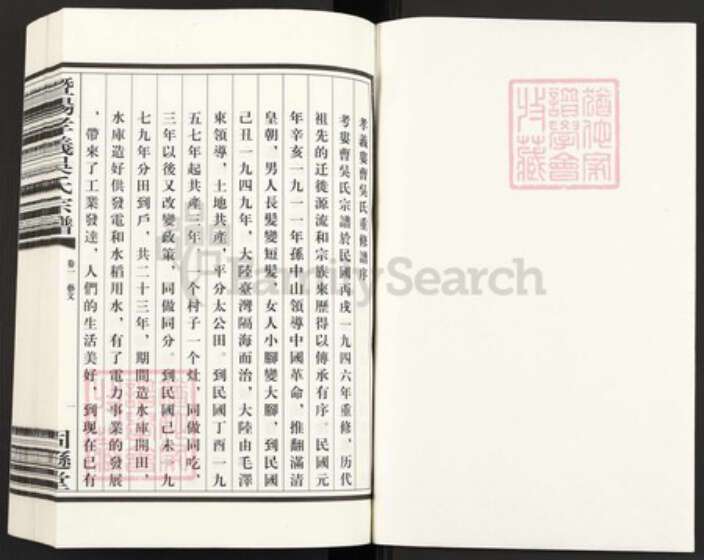 孝義婁曹吳氏重修譜序
考婁曹吳氏宗譜於民國丙戌一九四六年重修，历代
祖先的迁徙源流和宗族来歷得以傳承有序。民國元
年辛亥一九一一年孫中山領導中國革命，推翻滿清
皇朝，男人長髮變短髮，女人小腳變大腳，到民國
己丑一九四九年，大陸臺灣隔海而治，大陸由毛澤
東領導，土地共產，平分太公田。到民國丁酉一九
五七年起共產三年，一个村子一个灶，同做同吃，
三年以後又改變政策，同做同分。到民國己未一九
七九年分田到戶，共二十三年，期間造水庫開田，
水庫造好供發電和水稻用水，有了電力事業的發展
，帶來了工業發達，人們的生活美好，到现在已有
暨陽孝義吳氏宗譜
卷一 藝文
一
譜學會
收藏
FamilySearch